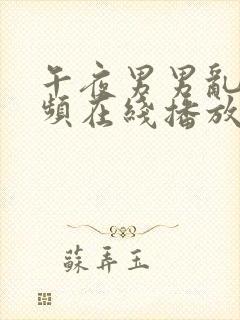 午夜男男亂
頻在綫播放
蘇弄玉